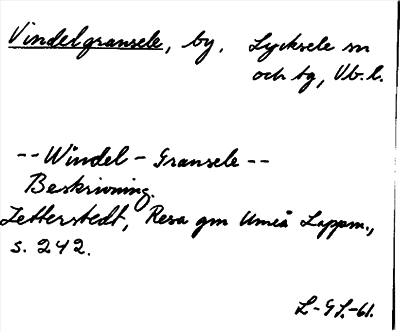 Vindelgransele, by. Lycksele sn
och tg, Vb. l.
-- Windel - Gransele --
Beskrivning.
Zetterstedt, Resa gm Umeå Lappm.,
s. 242.
L-GS.-61.